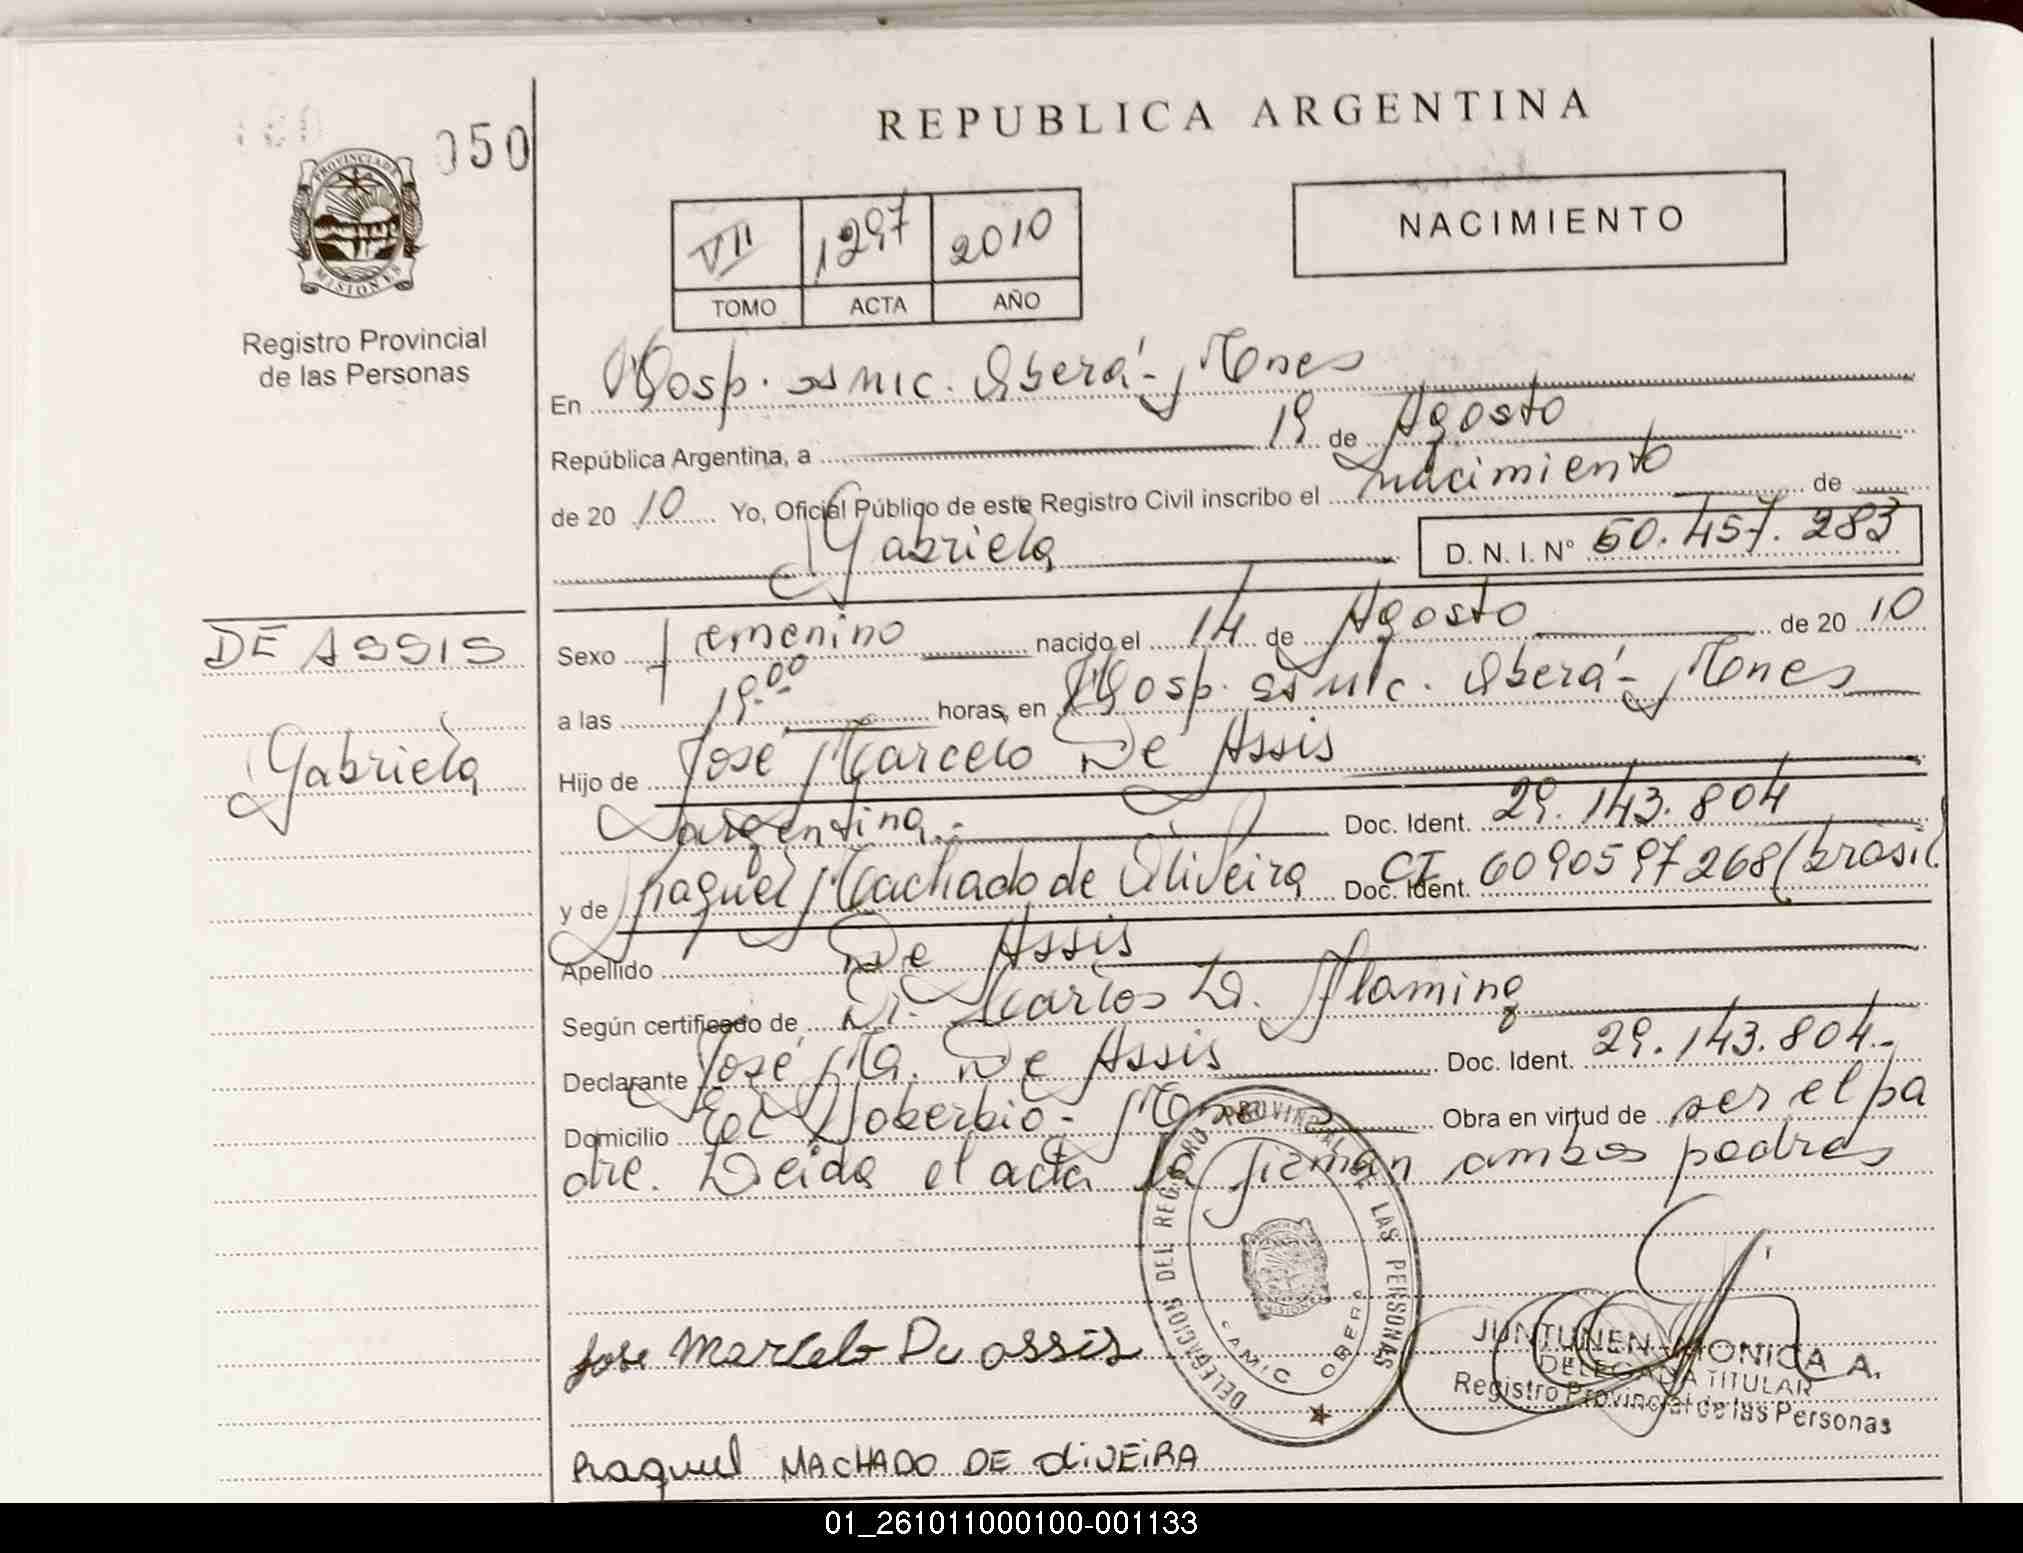 050
REPUBLICA ARGENTINA
PROVINCIA DE MISIONES
VII 1297 2010
TOMO ACTA AÑO
NACIMIENTO
Registro Provincial
de las Personas
En Hosp. SAMIC. Oberá - Mnes
República Argentina, a 19 de Agosto
de 2010 Yo, Oficial Público de este Registro Civil inscribo el nacimiento de
Gabriela D. N. I. N° 50.457.283
DE ASSIS
Gabriela
Sexo femenino nacido el 14 de Agosto de 2010
a las 19:00 horas, en Hosp. SAMIC. Oberá - Mnes
Hijo de José Marcelo De Assis
argentina.- Doc. Ident. 29.143.804
y de Raquel Machado de Oliveira Doc. Ident. CI 6090597268 (brasil)
Apellido De Assis
Según certificado de Dr. Carlos D. Flaming
Declarante José Ma. De Assis Doc. Ident. 29.143.804.-
Domicilio El Soberbio - Mnes Obra en virtud de ser el pa
dre. Leida el acta la firman ambos padres
DELEGACION DEL REGISTRO PROVINCIAL DE LAS PERSONAS
SAMIC OBERA
MISIONES
Jose Marcelo De assis
JUNTUNEN MONICA A.
DELEGADA TITULAR
Registro Provincial de las Personas
Raquel MACHADO DE OLIVEIRA
01_261011000100-001133